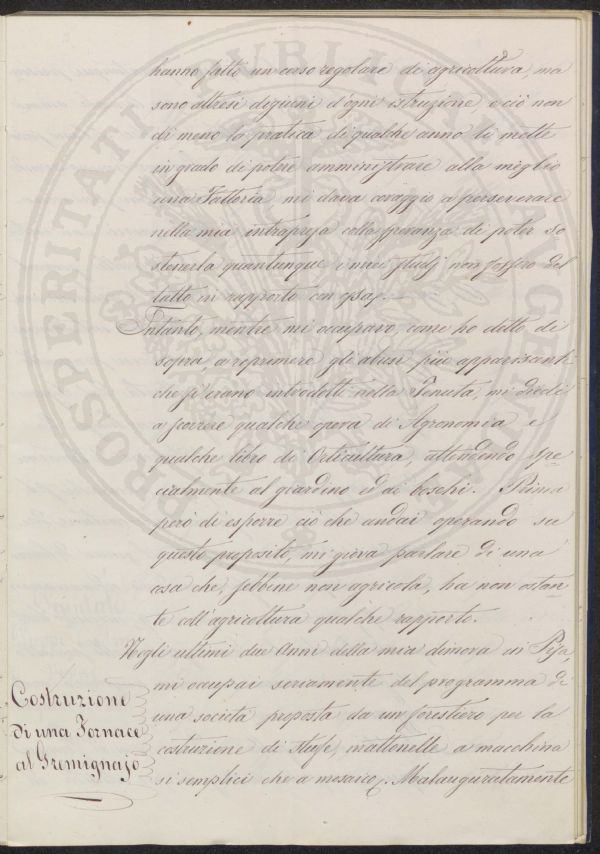 hanno fatto un corso regolare di agricoltura, ma
sono altresì digiuni d'ogni istruzione, e ciò non
di meno la pratica di qualche anno li mette
in grado di potere amministrare alla meglio
una Fattoria mi dava coraggio a perseverare
nella mia intrapresa colla speranza di poter so
stenerla quantunque i miei studj non fossero del
tutto in rapporto con essa.
Intanto, mentre mi occupavo, come ho detto di
sopra, a reprimere gli abusi più appariscenti
che s'erano introdotti nella Tenuta, mi diedi
a scorrere qualche opera di Agronomia e
qualche libro di Orticultura, attendendo spe
cialmente al giardino ed ai boschi. Prima
però di esporre ciò che andai operando su
questo proposito, mi giova parlare di una
cosa che, sebbene non agricola, ha non ostan
te coll'agricoltura qualche rapporto.
Negli ultimi due Anni della mia dimora in Pisa,
mi occupai seriamente del programma di
una società proposta da un forestiero per la
costruzione di stufe, mattonelle a macchina
sì semplici che a mosaico. Malauguratamente
Costruzione
di una Fornace
al Gremignajo
PROSPERITATI PUBLICAE AUGENDAE